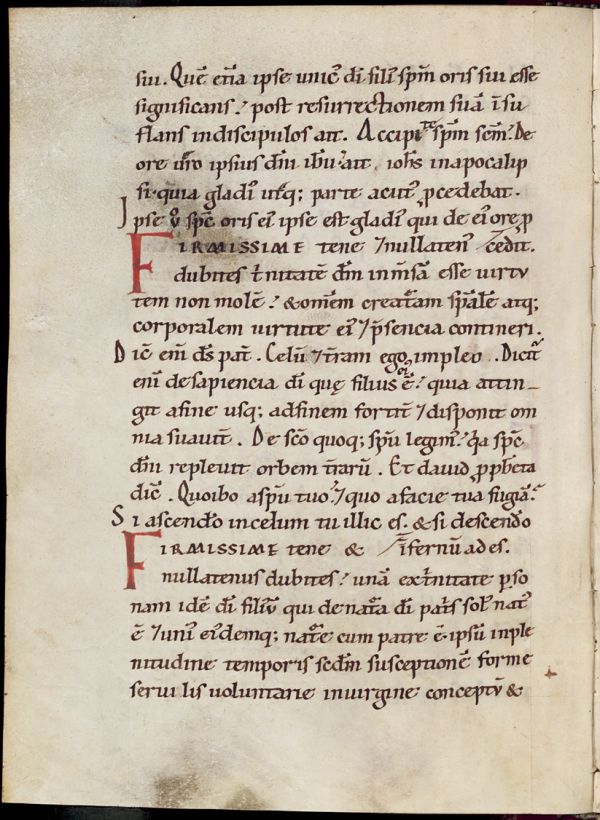 sui. Quē etiā ipse unicꝰ dī filiꝰ spm̄ oris sui esse
significans. post resurrectionem suā īsu
flans in discipulos ait. Accipite spm̄ scm̄. De
ore ū̊o ipsius dn̄i ihū ait iohs̄ in apocalip
si. quia gladiꝰ utꝗ; parte acutꝰ ꝓcedebat.
Ipse ū̊ spc̄ oris eiꝰ ipse est gladiꝰ qui de eiꝰ ore ꝓ
FIRMISSIME tene ⁊ nullatenꝰ cedit.
dubites t̄nitatē dm̄ inm̄sā esse virtu
tem non molē. & om̄em creatᵃam sp̄alē atq;
corporalem virtute eiꝰ ⁊ p̄sencia contineri.
Dic̄ eni ds̄ pat̄. Celū ⁊ t̄ram ego impleo. Dicit᷑
eni de sapiencia dī quę filius ē. quia attin
git a fine usq; ad finem fortit̄ ⁊ disponit om
nia suavit̄. De sc̄o quoq; sp̄u legimꝰ. qᵃ spc̄
dn̄i replevit orbem t̄rarū. Et dauid ꝓpheta
dic̄. Quo ibo a sp̄u tuo. ⁊ quo a facie tua fugiā.
Si ascendero in celum tu illic es. & si descendero
FIRMISSIME tene & īfernū ades.
nullatenus dubites. unā ex t̄nitate p̱so
nam idē dī filiū qui de natᵃa dī pat̄s solꝰ natꝰ
ē ⁊ uniꝰ eiꝰdemq; natᵃe cum patre ē. ipsū in ple
nitudine temporis scd̄m susceptionē forme
servilis voluntarie in virgine conceptū &